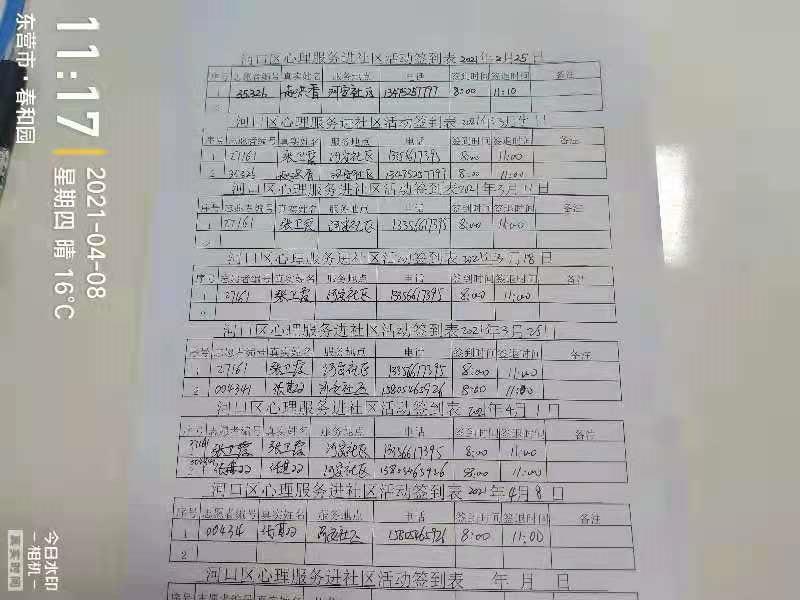 11:17
2021-04-08
星期四 晴 16°C
东营市·春和园
河口区心理服务进社区活动签到表 2021年2月25日
序号 志愿者编号 真实姓名 服务地点 电话 签到时间 签退时间 备注
1 35326 河安社区 13475257797 8:00 11:10
2
河口区心理服务进社区活动签到表 2021年3月
序号 志愿者编号 真实姓名 服务地点 电话 签到时间 签退时间 备注
1 27161 张卫霞 河安社区 13356617395 8:00 11:00
2 35326 河安社区 13475257797 8:00 11:00
河口区心理服务进社区活动签到表 2021年3月11日
序号 志愿者编号 真实姓名 服务地点 电话 签到时间 签退时间 备注
1 27161 张卫霞 河安社区 13356617395 8:00 11:00
2
河口区心理服务进社区活动签到表 2021年3月18日
序号 志愿者编号 真实姓名 服务地点 电话 签到时间 签退时间 备注
1 27161 张卫霞 河安社区 13356617395 8:00 11:00
2
河口区心理服务进社区活动签到表 2021年3月25日
序号 志愿者编号 真实姓名 服务地点 电话 签到时间 签退时间 备注
1 27161 张卫霞 河安社区 13356617395 8:00 11:00
2 004341 河安社区 15805465926 8:00 11:00
河口区心理服务进社区活动签到表 2021年4月1日
序号 志愿者编号 真实姓名 服务地点 电话 签到时间 签退时间 备注
27161 张卫霞 张卫霞 河安社区 13356617395 8:00 11:00
河安社区 15805465926 8:00 11:00
河口区心理服务进社区活动签到表 2021年4月8日
序号 志愿者编号 真实姓名 服务地点 电话 签到时间 签退时间 备注
1 004341 河安社区 15805465926 8:00 11:00
2
河口区心理服务进社区活动签到表 年 月 日
序号 志愿者编号 真实姓名
今日水印
相机
真实时间